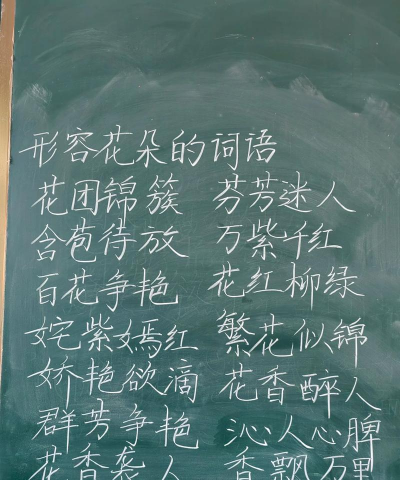 形容花朵的词语
花团锦簇 芬芳迷人
含苞待放 万紫千红
百花争艳 花红柳绿
姹紫嫣红 繁花似锦
娇艳欲滴 花香醉人
群芳争艳 沁人心脾
花香袭人 香飘万里